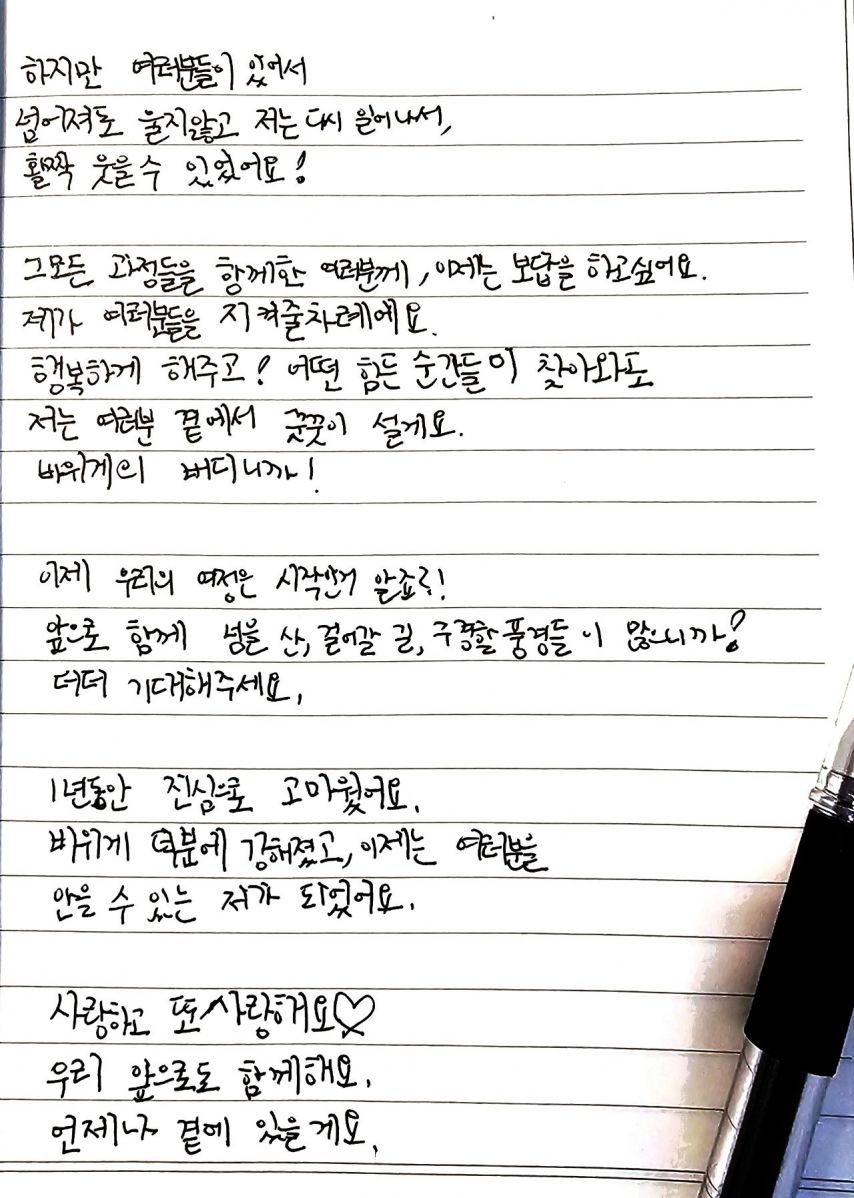 하지만 여러분들이 있어서
넘어져도 울지않고 저는 다시 일어나서,
활짝 웃을 수 있었어요!
그모든 과정들을 함께한 여러분께, 이제는 보답을 하고싶어요.
제가 여러분들을 지켜줄차례에요.
행복하게 해주고! 어떤 힘든 순간들이 찾아와도
저는 여러분 곁에서 꿋꿋이 설게요.
바위게의 버디니까!
이제 우리의 여정은 시작인거 알죠?!
앞으로 함께 넘을 산, 걸어갈 길, 구경할 풍경들이 많으니까!
더더 기대해주세요.
1년동안 진심으로 고마웠어요.
바위게 덕분에 강해졌고, 이제는 여러분을
안을 수 있는 저가 되었어요.
사랑하고 또 사랑해요♡
우리 앞으로도 함께해요.
언제나 곁에 있을게요.